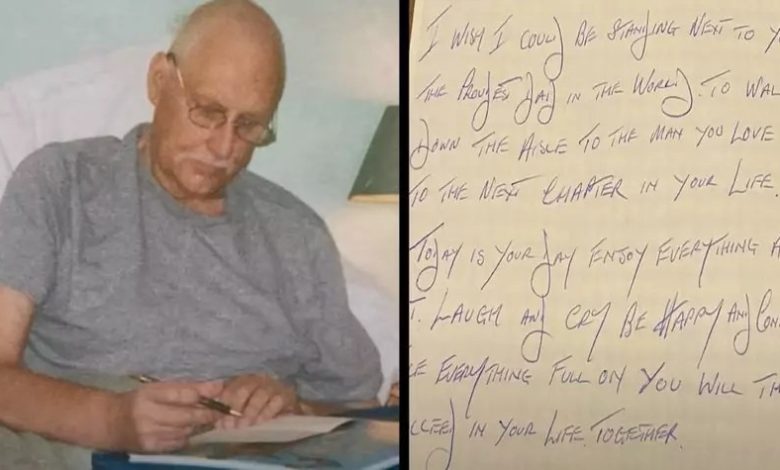 I WISH I COULD BE STANDING NEXT TO
THE PROUDEST DAD IN THE WORLD. TO WAL
DOWN THE AISLE TO THE MAN YOU LOVE
TO THE NEXT CHAPTER IN YOUR LIFE.
TODAY IS YOUR DAY ENJOY EVERYTHING
LAUGH AND CRY BE HAPPY AND
EVERYTHING FULL ON YOU WILL TH
CCEED IN YOUR LIFE. TOGETHER.